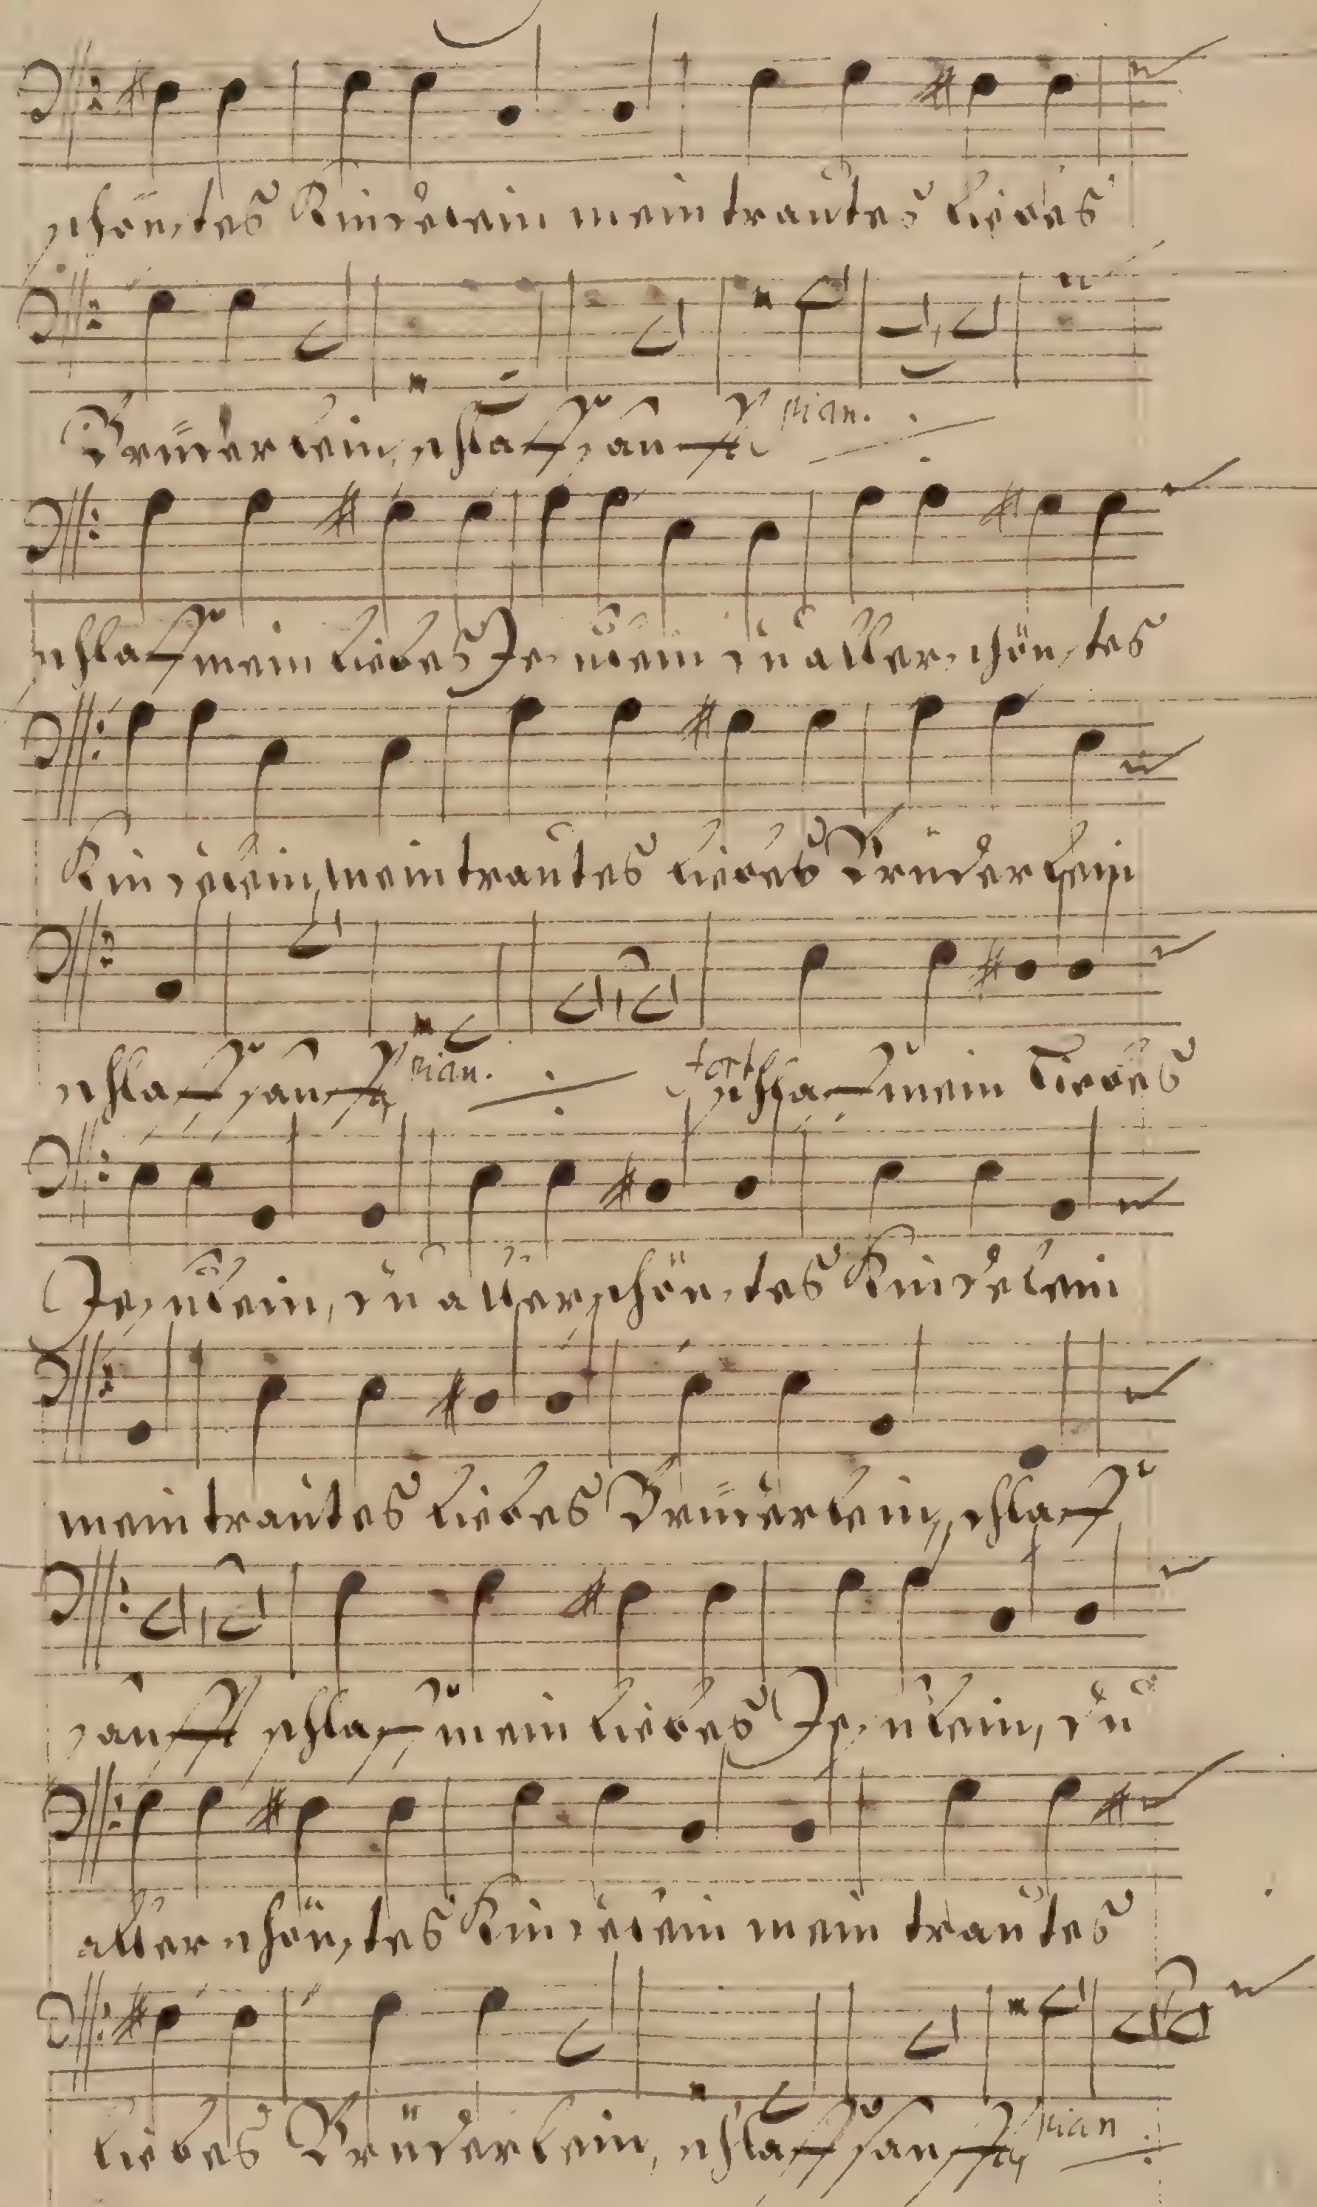 schönstes Kindelein mein trautes liebes
Brüderlein, schlaff sanfft pian.
schlaff mein liebes Jesulein du allerschönstes
Kindelein, mein trautes liebes Brüderlein
schlaff sanfft pian. fort schlaff mein liebes
Jesulein, du allerschönstes Kindelein
mein trautes liebes Brüderlein, schlaff
sanfft schlaff mein liebes Jesulein, du
allerschönstes Kindelein mein trautes
liebes Brüderlein, schlaff sanfft pian